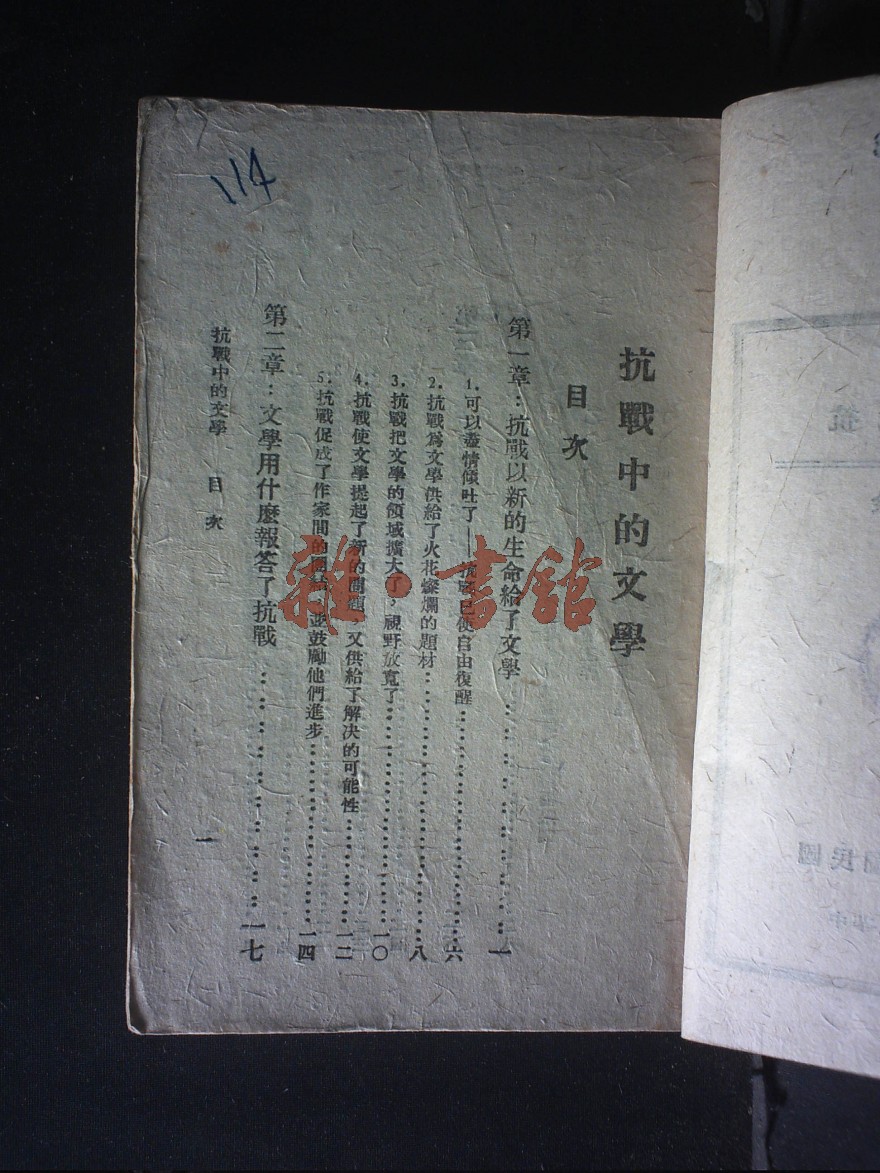 抗戰中的文學
目次
第一章：抗戰以新的生命給了文學……………一
1.可以盡情傾吐了——抗戰已使自由復醒……………六
2.抗戰爲文學供給了火花燦爛的題材……………八
3.抗戰把文學的領域擴大了，視野放寬了……………一〇
4.抗戰使文學提起了新的問題，又供給了解決的可能性……………一二
5.抗戰促成了作家間的團結，並鼓勵他們進步……………一四
第二章：文學用什麼報答了抗戰……………一七
抗戰中的文學 目次 一
114
雜·書館